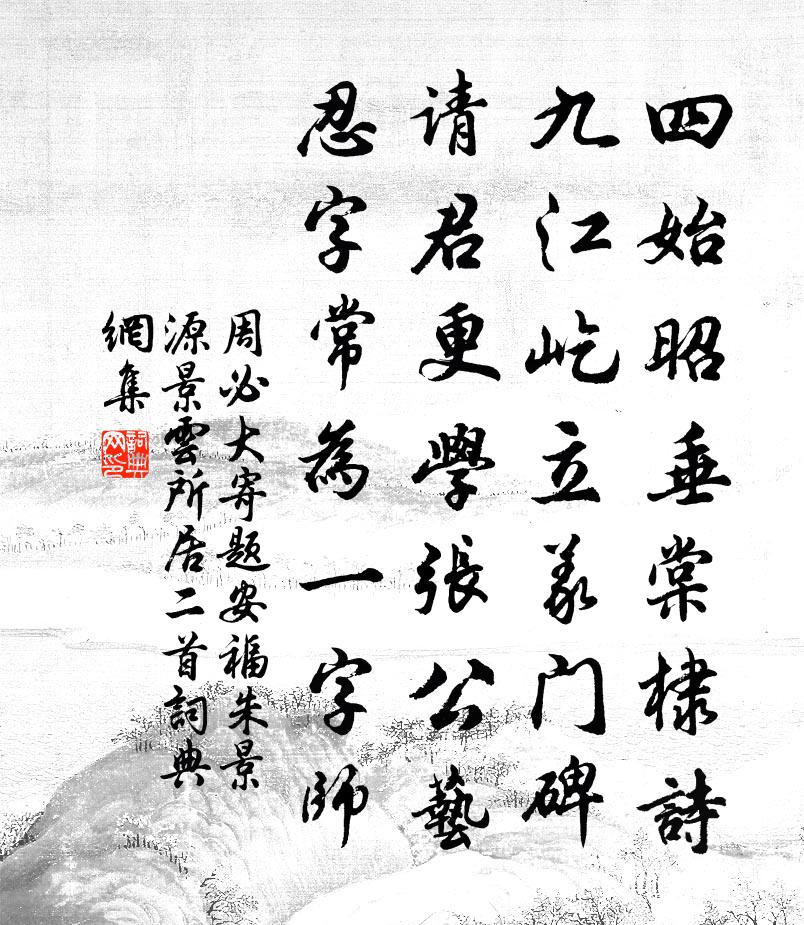 四始昭垂棠棣詩
九江屹立义门碑
请君更學張公藝
忍字常為一字師
周必大寄题安福朱景
源景雲所居二首詞典
網集
詞典網印